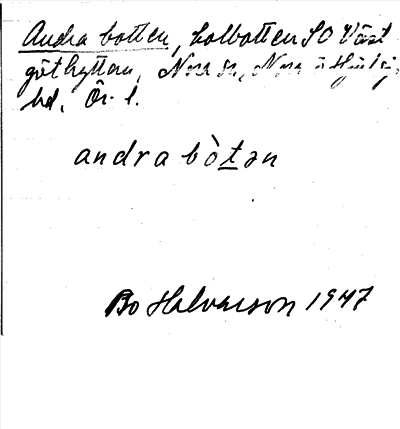 Andra botten, kolbotten SO Väst
göthyttan, Nora sn, Nora o Hjulsjö
hd, Ör. l.
andra bòtən
Bo Halvarson 1947